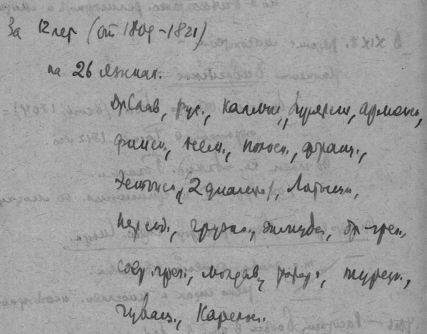 За 12 лет (от 1809-1821)
на 26 языках.
Др Слав, рус., калмыц., бурятск., армянск.,
финск., нем., польск., франц.,
эстонск., 2 диалекта), Латышск.,
персид., грузин., др-греч.
совр. греч., молдав., турецк.,
чуваш., Карельск.